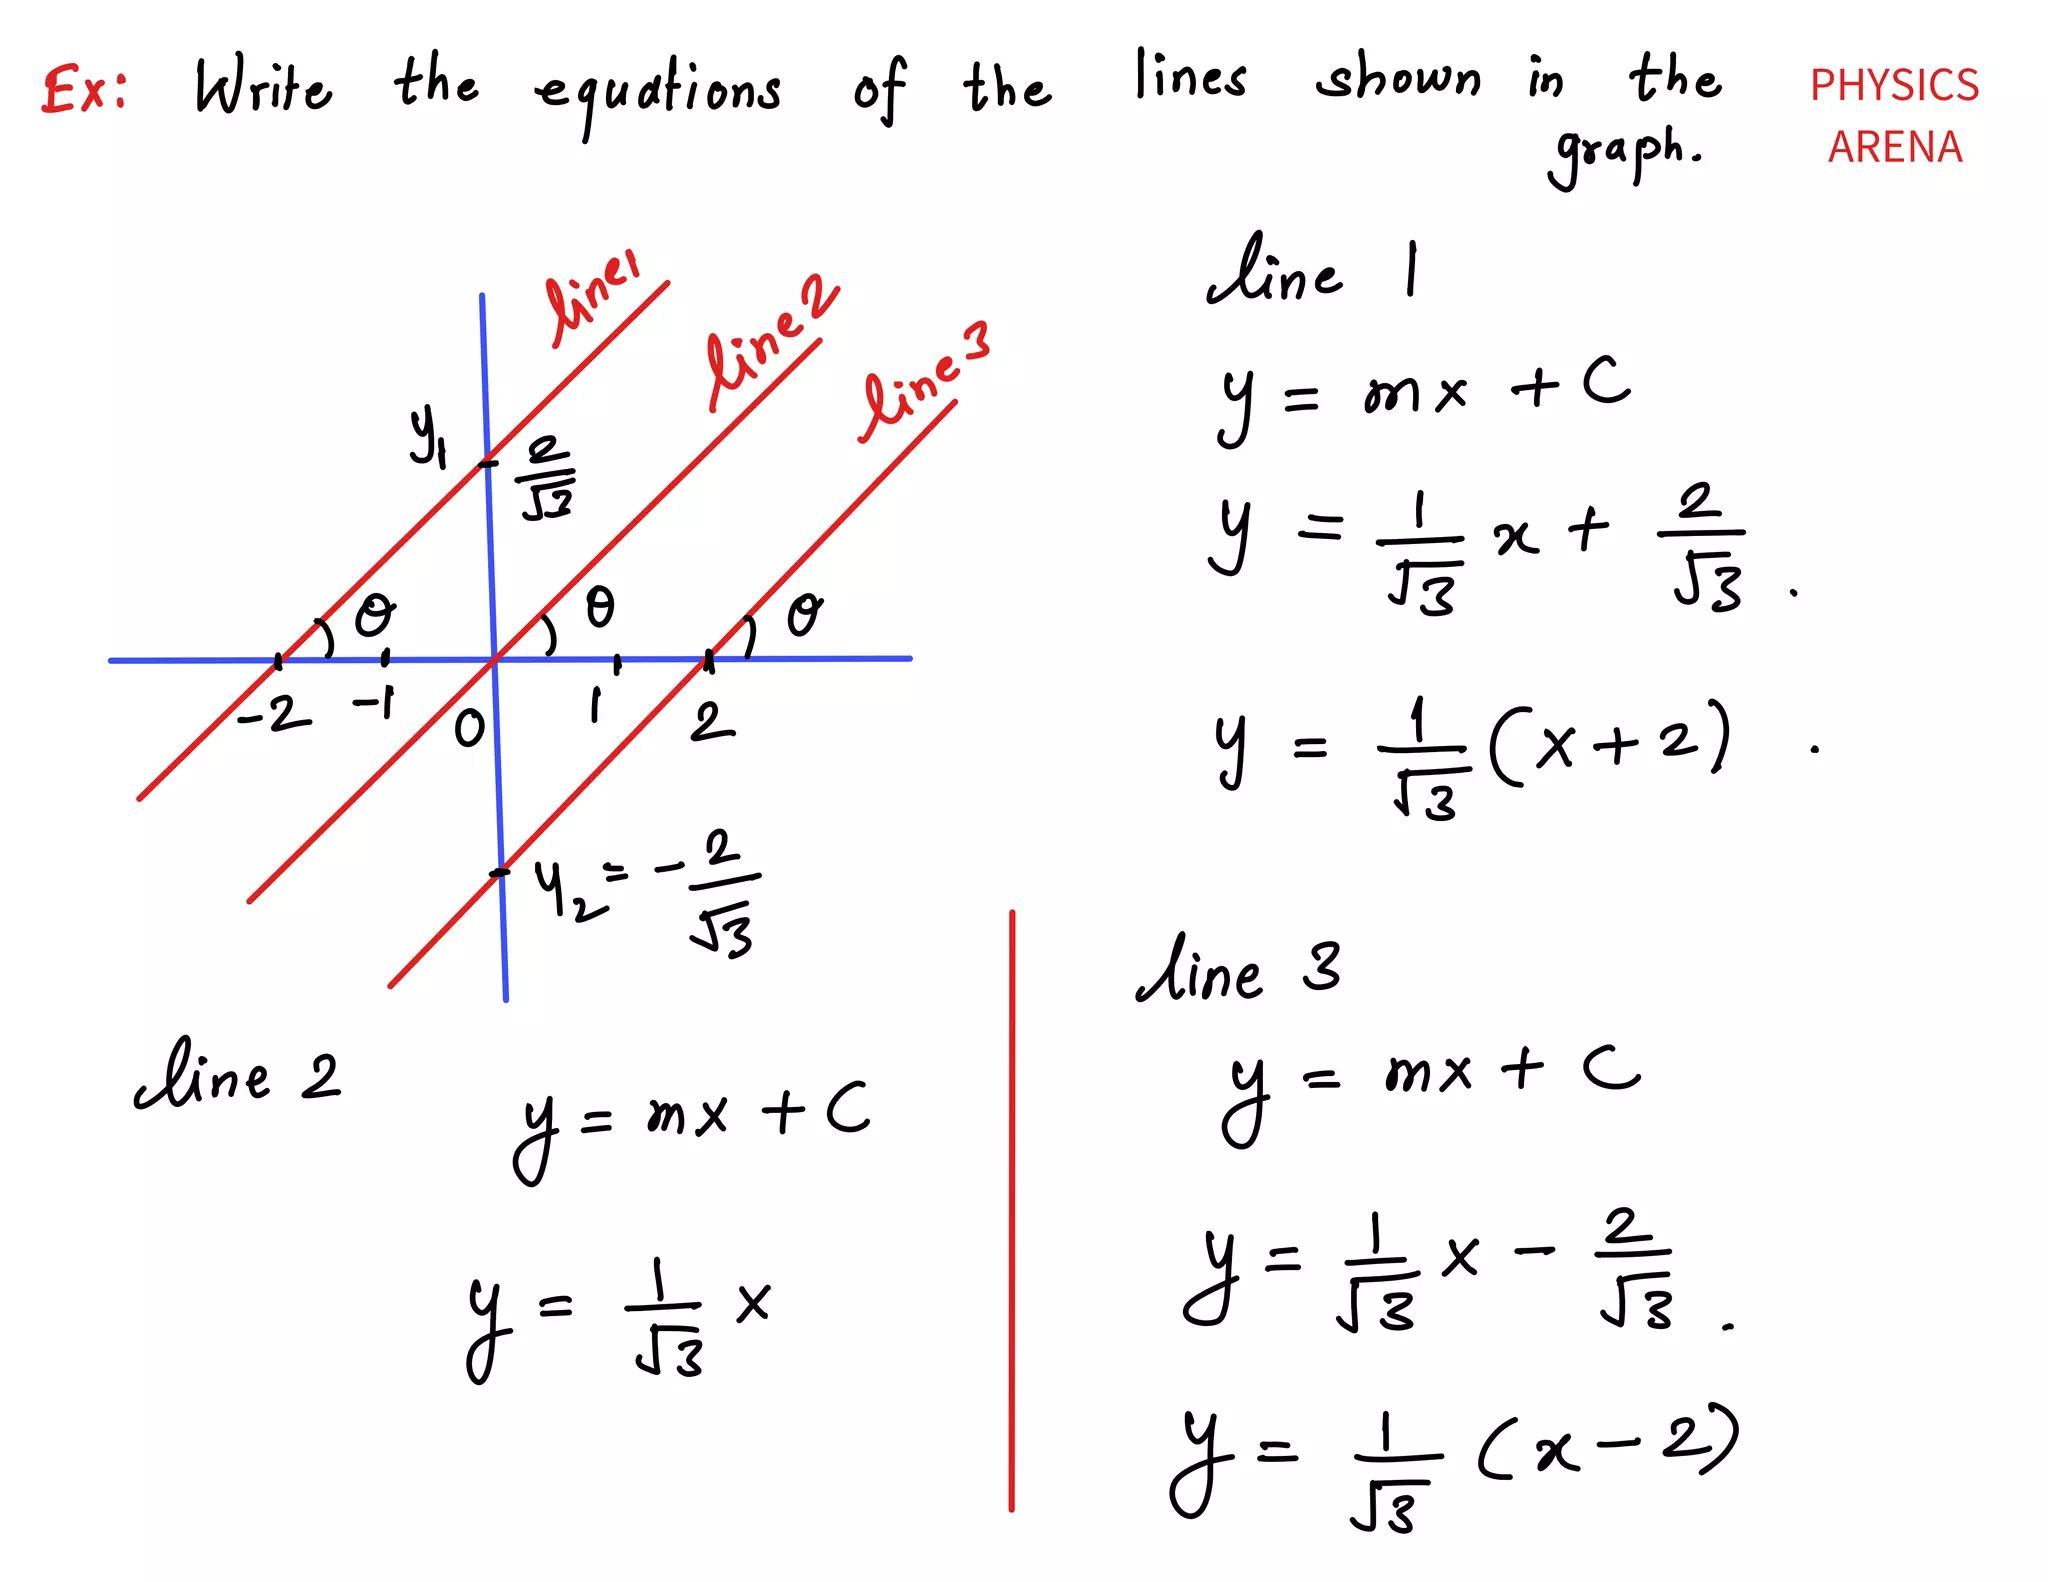 Ex: Write the equations of the lines shown in the graph.
PHYSICS
ARENA
line 1
line 2
line 3
y₁
2/√3
θ θ θ
-2 -1 0 1 2
y₂ = -2/√3
line 1
y = mx + C
y = 1/√3 x + 2/√3 .
y = 1/√3 (x+2) .
line 2
y = mx + C
y = 1/√3 x
line 3
y = mx + C
y = 1/√3 x - 2/√3 .
y = 1/√3 (x-2)